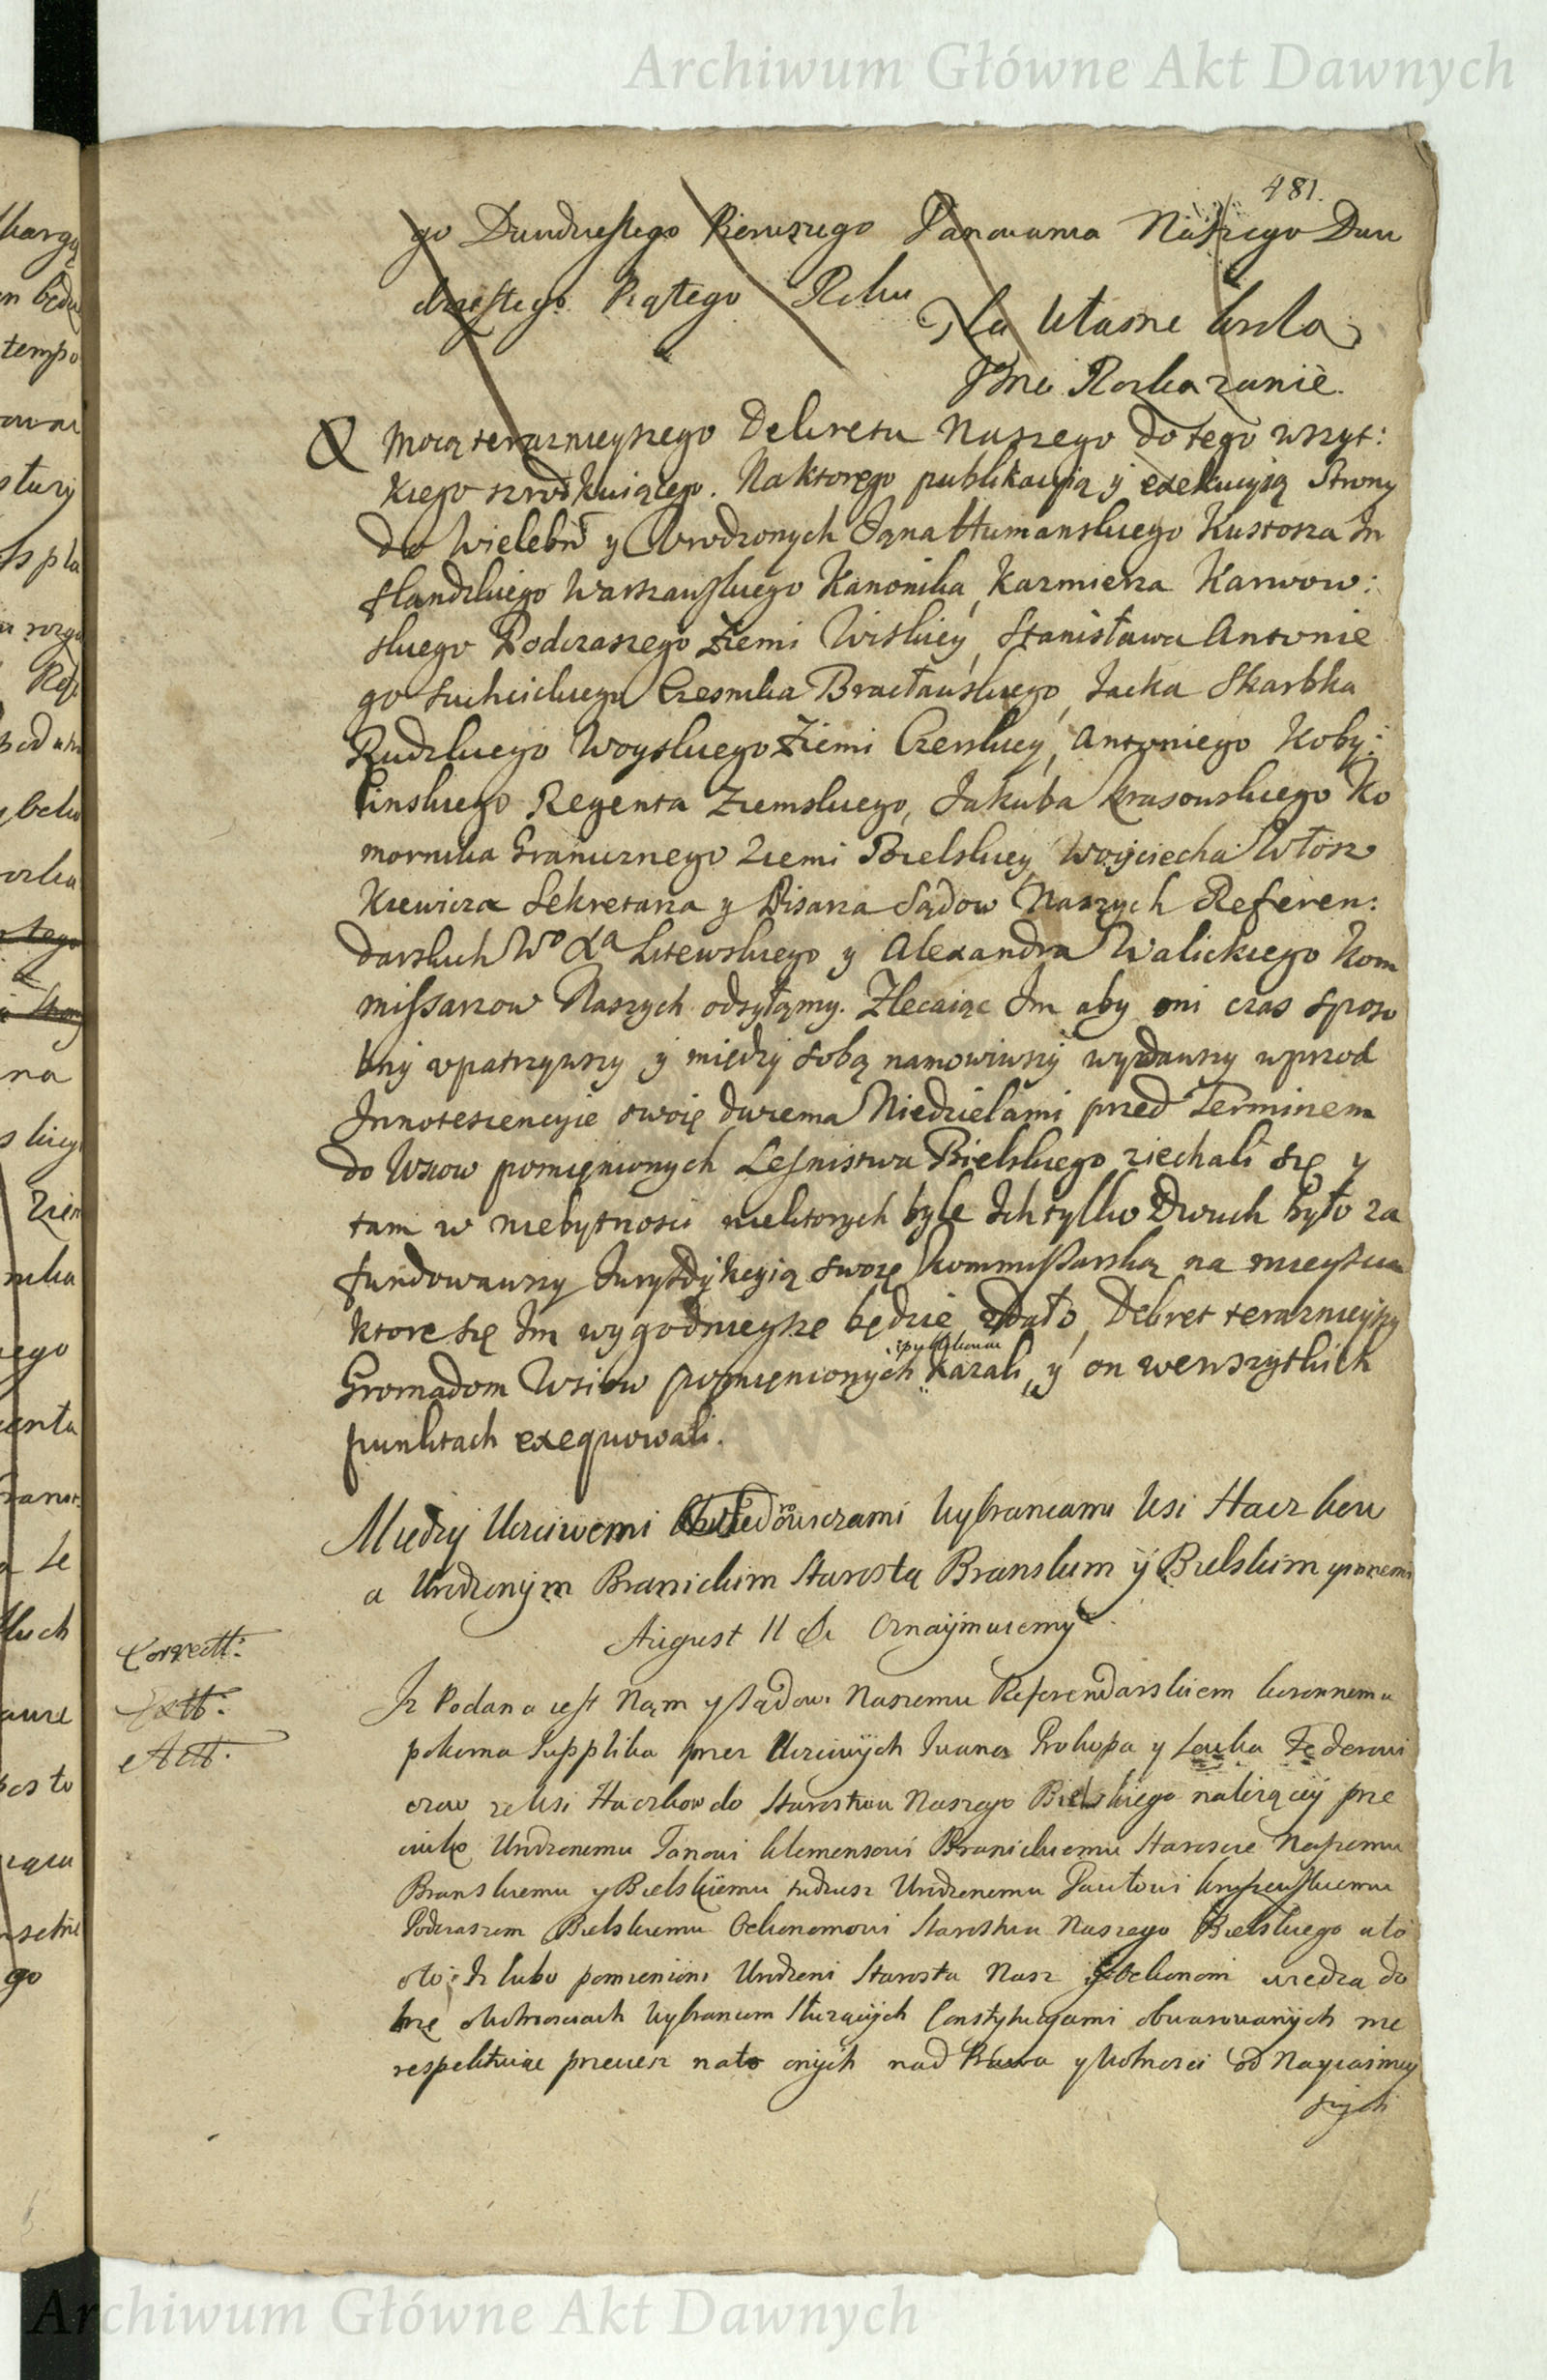 Archiwum Główne Akt Dawnych
481.
go Dwudziestego Pierwszego Panowania Naszego Dwu
dziestego Piątego Roku
Na własne Krola
Jmci Rozkazanie.
& Mocą teraznieyszego Dekretu Naszego do tego wszyt:
kiego sciągaiącego. Na ktorego publikacyią y exekucyią Strony
do Wielebn y Urodzonych Jana Humanskiego Kustosza In
flandzkiego Warszawskiego Kanonika, Kazmierza Karwow:
skiego Podczaszego Ziemi Wiskiey, Stanisława Antonie
go Suchcickiego Czesnika Bracławskiego, Jacka Skarbka
Rudzkiego Woyskiego Ziemi Czerskiey, Antoniego Koby:
linskiego Regenta Ziemskiego, Jakuba Krasowskiego Ko
mornika Granicznego Ziemi Bielskiey Woyciecha Włosz
kiewicza Sekretarza y Pisarza Sądow Naszych Referen:
darskich Wo Xa Litewskiego y Alexandra Walickiego Kom
missarzow Naszych odsyłamy. Zlecaiąc Im aby oni czas sposo
bny upatrzywszy y między sobą namowiwszy wydawszy wprzod
Innotescencyie swoię dwiema Niedzielami przed Terminem
do Wsiow pomięnionych Lesnistwa Bielskiego ziechali się y
tam w niebytnosci niektorych byle Ich tylko Dwuch było za
fundowawszy Jurysdykcyią swoię kommissarską na mieyscu
ktore się Im wygodnieysze będzie zdało, Dekret teraznieyszy
Gromadom Wsiow pomięnionych kazali y on wewszytkich
punktach exequowali.
Między Uczciwemi Chwiedorowiczami Wybrancami Wsi Haczkow
a Urodzonym Branickim Starostą Branskim y Bielskim y innemi
August II & Oznaymuiemy
Iz Podana iest Nam y Sądowi Naszemu Referendarskiem koronnemu
pokorna Supplika przez Uczciwych Iwana Prokopa y Lewka Fedorowi
czow ze Wsi Haczkow do Starostwa Naszego Bielskiego nalezącey prze
ciwko Urodzonemu Janowi Klemensowi Branickiemu Staroscie Naszemu
Branskiemu y Bielskiemu tudziesz Urodzonemu Pawłowi
Podczaszem Bielskiemu Oekonomowi Starostwa Naszego Bielskiego oto
oto: Iz lubo pomienieni Urodzeni Starosta Nasz y Oekonom wiedzą do
brze o wolnosciach Wybrancom słuzących Constytucyami obwarowanych nie
respektuiąc przeciesz na to onych nad Prawa y Wolnosci od Nayiasniey
szych
Correct:
Extt:
Actt.
Archiwum Główne Akt Dawnych